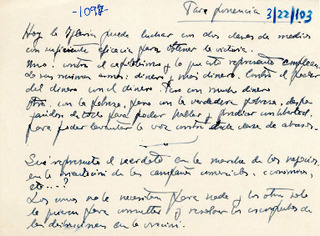 -1098
Para ponencia
3/22/103
Hoy la Iglesia puede luchar con dos clases de medios
con suficiente eficacia para obtener la victoria.
Uno: contra el capitalismo y lo que éste representa empleando
sus mismas armas: dinero y más dinero. Contra el poder
del dinero con el dinero. Pero con mucho dinero
Otro: con la pobreza, pero con la verdadera pobreza, despo
jándose de todo para poder hablar y predicar con libertad,
para poder levantar la voz contra toda clase de abusos.
Qué representa el sacerdote en la marcha de los negocios,
en la de las campañas comerciales, económicas,
etc...?
Los unos no le necesitan para nada y los otros solo
le quieren para consultar y resolver los escrúpulos de
las en la